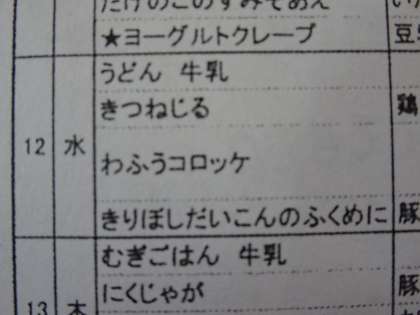 たけのこのすみそあえ
★ヨーグルトクレープ
うどん 牛乳
きつねじる 鶏
12 水
わふうコロッケ
きりぼしだいこんのふくめに 豚
むぎごはん 牛乳
にくじゃが 豚
13 木